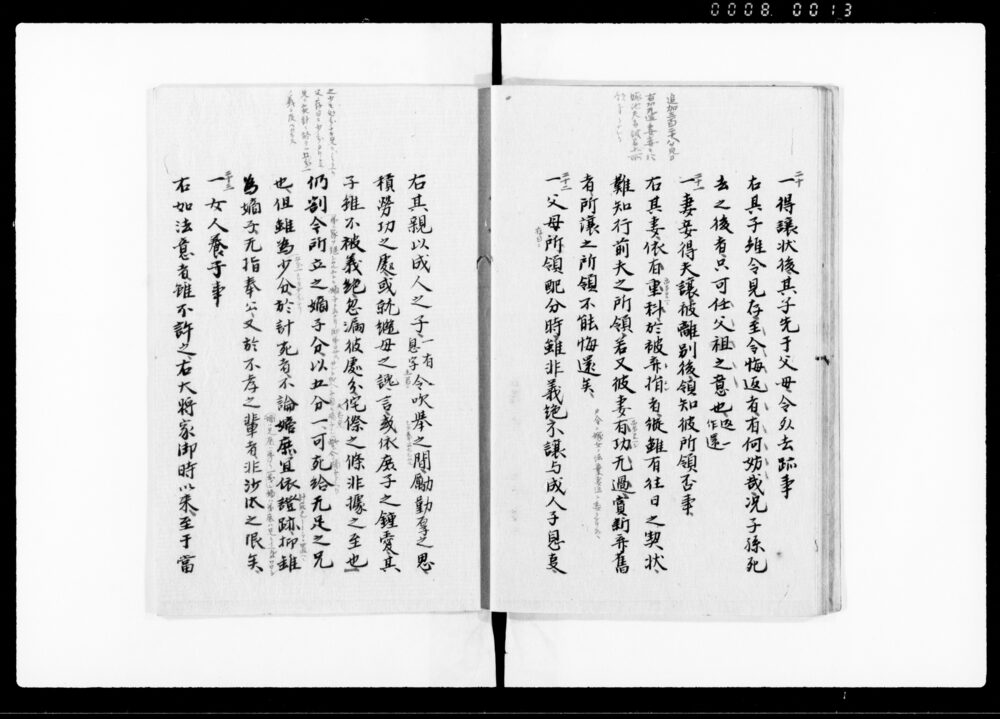 0008 0013
二十
一 得讓狀後其子先于父母令死去跡事
右其子雖令見存至令悔返者有何妨哉况子孫死
去之後者只可任父祖之意也
返一
作還
廿一
一 妻妾得夫讓被離別後領知彼所領否事
右其妻依有重科於被弃捐者縱雖有往日之契狀
難知行前夫之所領若又彼妻有功无過賞新弃舊
者所讓之所領不能悔還矣
廿二
一 父母所領配分時雖非義絶不讓与成人子息事
右其親以成人之子
一有
息字
令吹舉之間勵勤厚之思
積勞功之處或就継母之讒言或依庶子之鍾愛其
子雖不被義絶忽漏彼處分侘傺之條非據之至也
仍割令所立之嫡子分以五分一可充給无足之兄
也但雖為少分於計充者不論嫡庶宜依證跡抑雖
為嫡子无指奉公又於不孝之輩者非沙汰之限矣
廿三
一 女人養子事
右如法意者雖不許之右大將家御時以來至于當